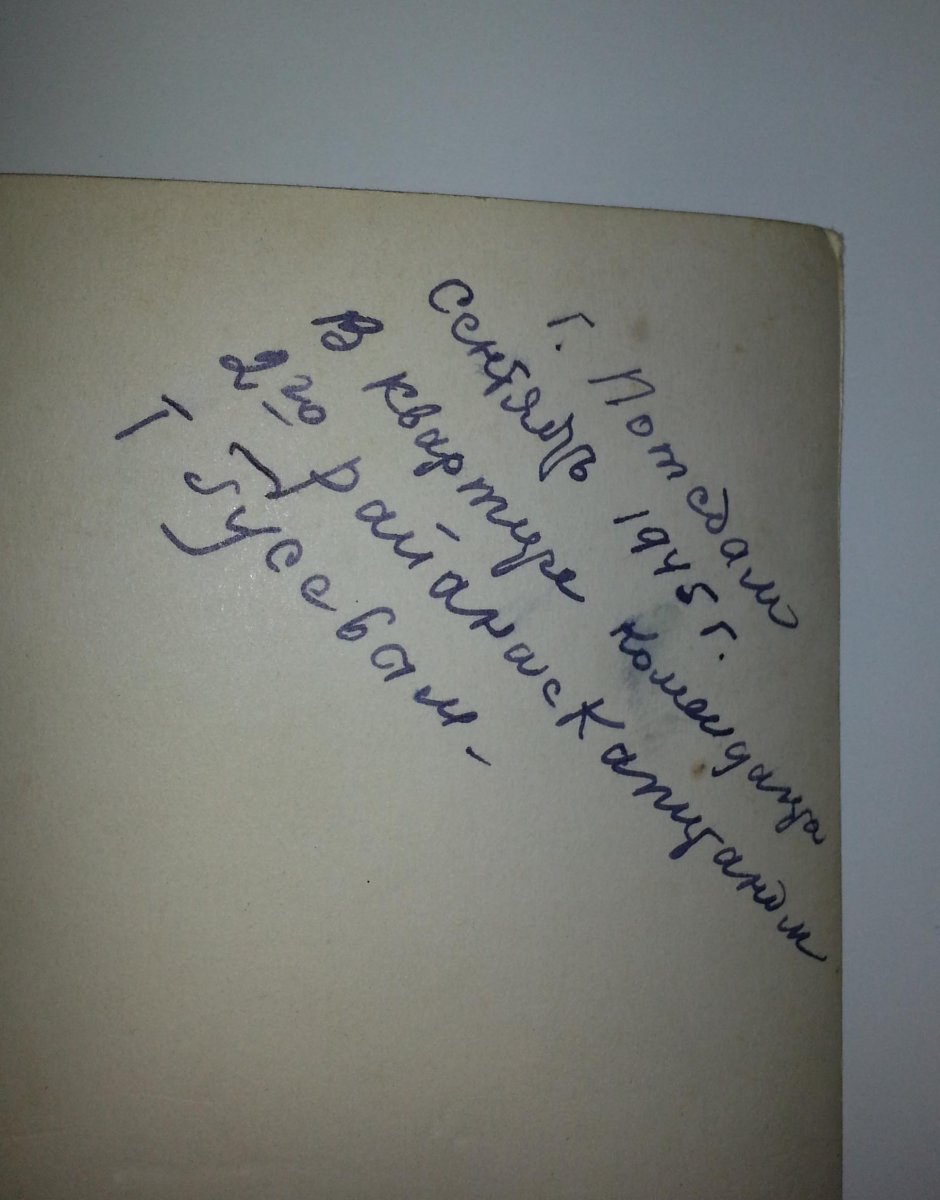 г. Потсдам
сентябрь 1945 г.
В квартире коменданта
2го района с Капитаном
Т Гусевым.